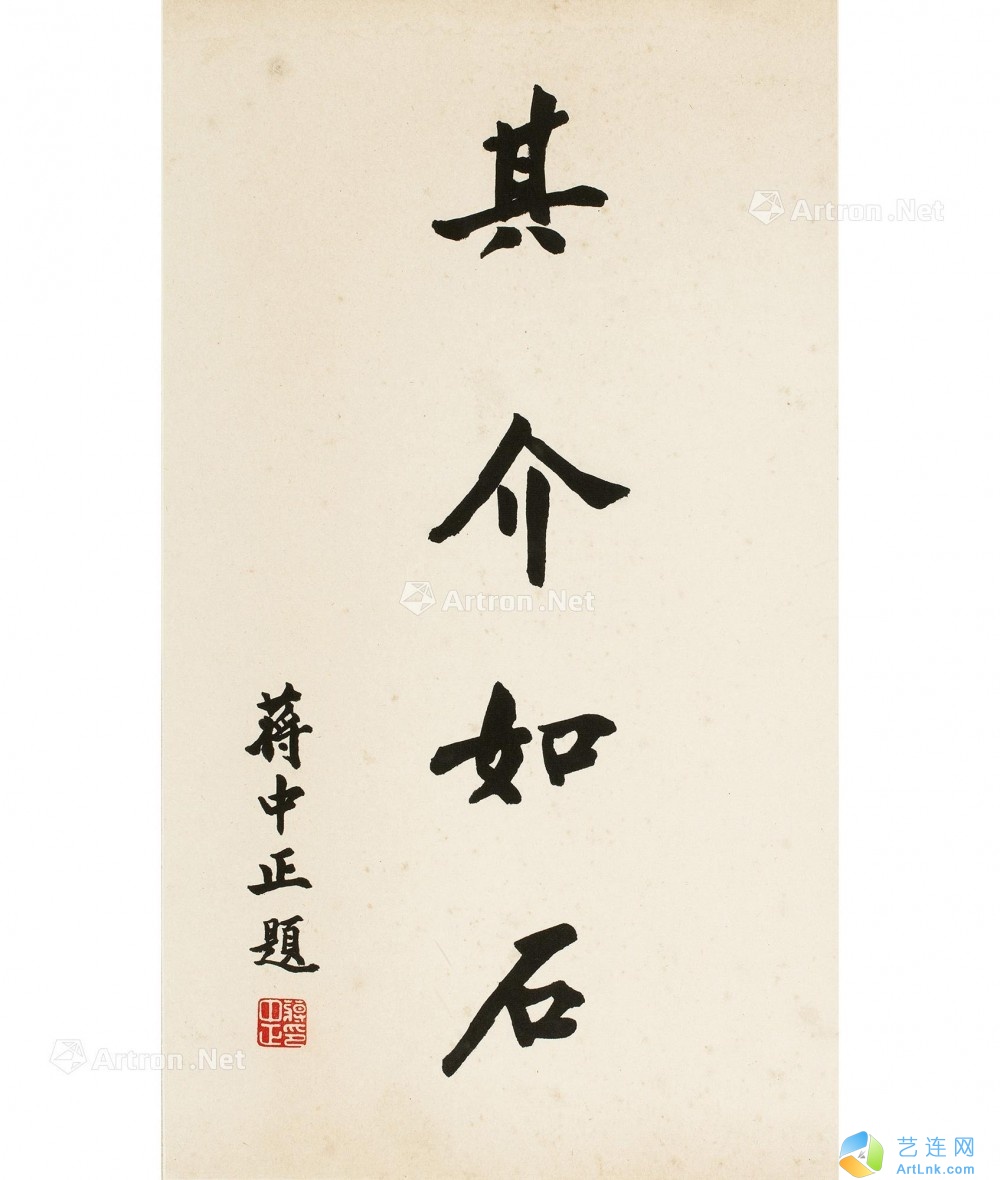 其介如石
蒋中正題
蔣中正印
Artron.Net
Artron.Net
Artron.Net
艺连网
ArtLnk.com